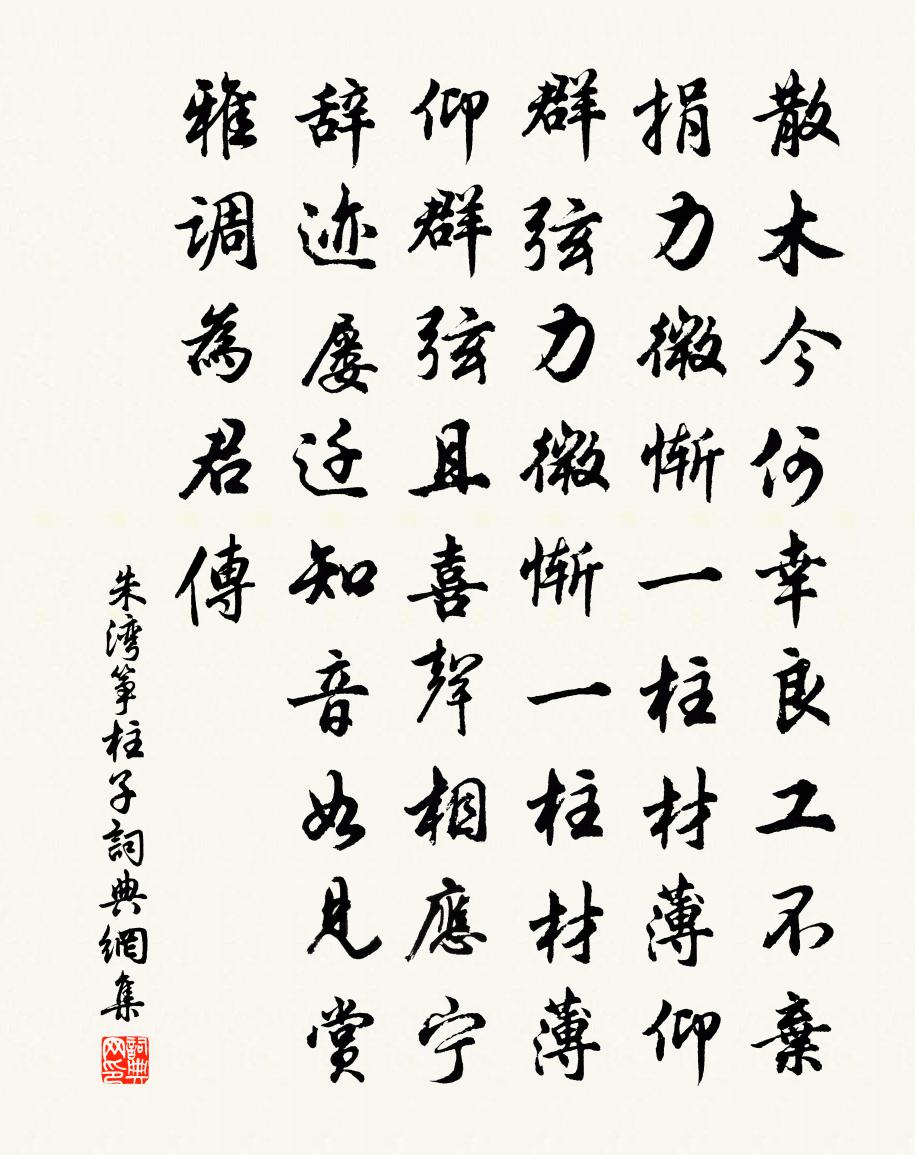 散木今何幸良工不棄
捐力微惭一柱材薄仰
群弦力微惭一柱材薄
仰群弦且喜聲相應宁
辞迹屡迁知音如見赏
雅调為君傳
朱湾筝柱子詞典網集
詞典网印